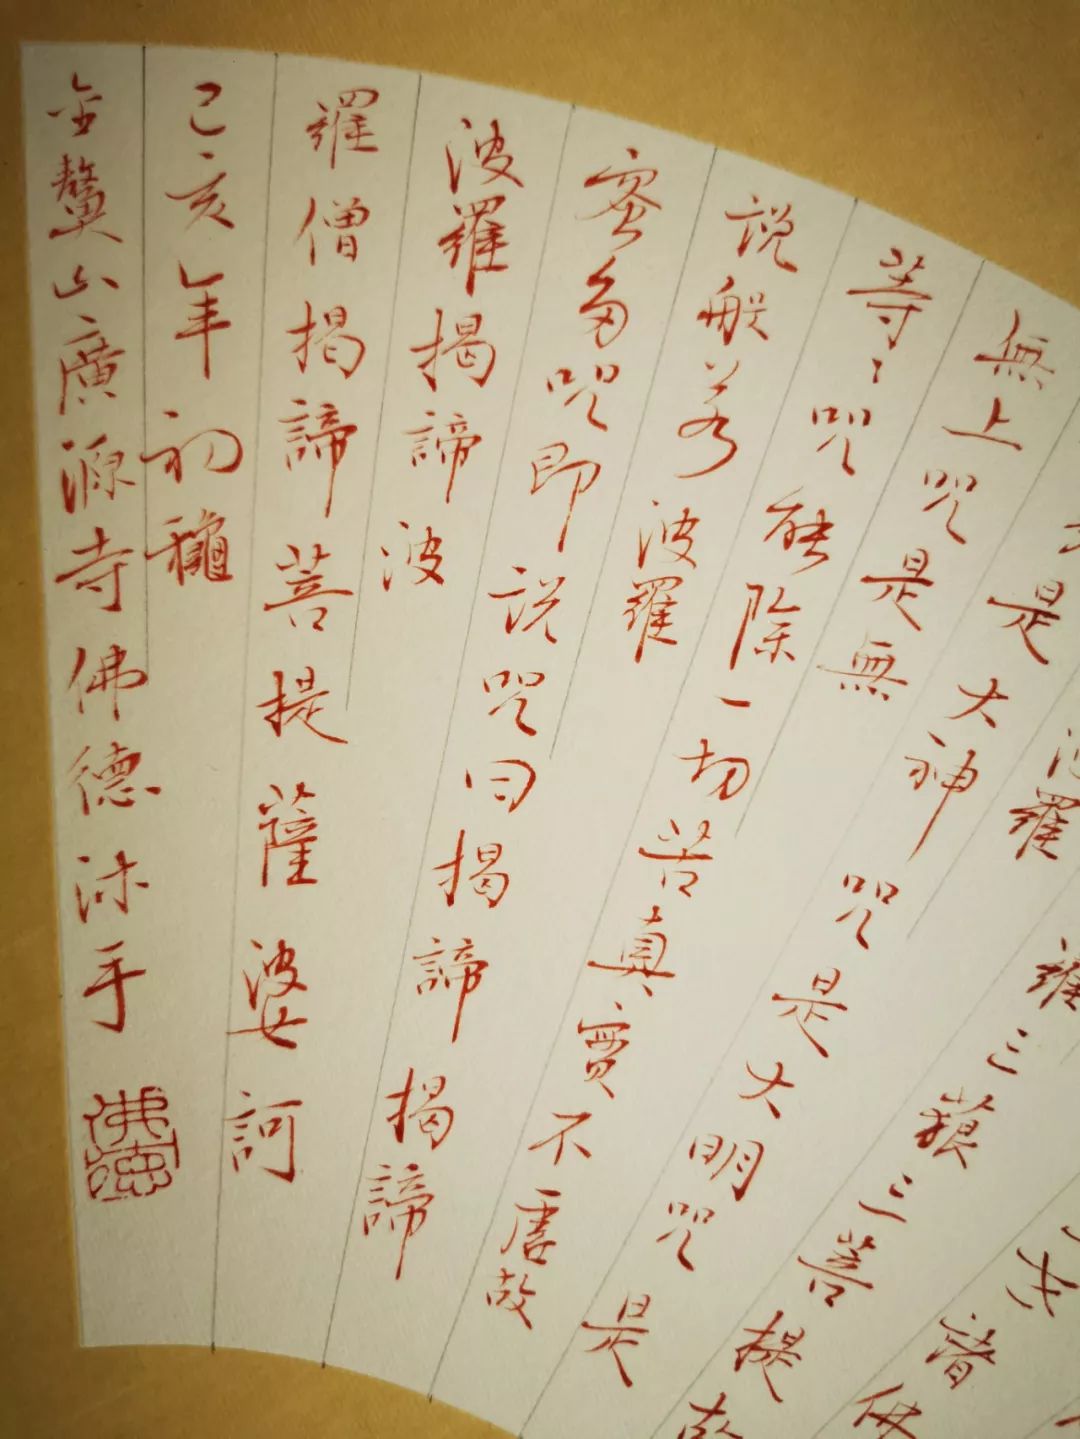 諸佛
羅三藐三菩提故
波羅
是大神咒是大明咒是
無上咒是無
等〻咒能除一切苦真實不虛故
說般若波羅
蜜多咒即說咒曰揭諦揭諦
波羅揭諦波
羅僧揭諦菩提薩婆訶
己亥年初龝
金鰲山廣源寺佛德沐手
佛德